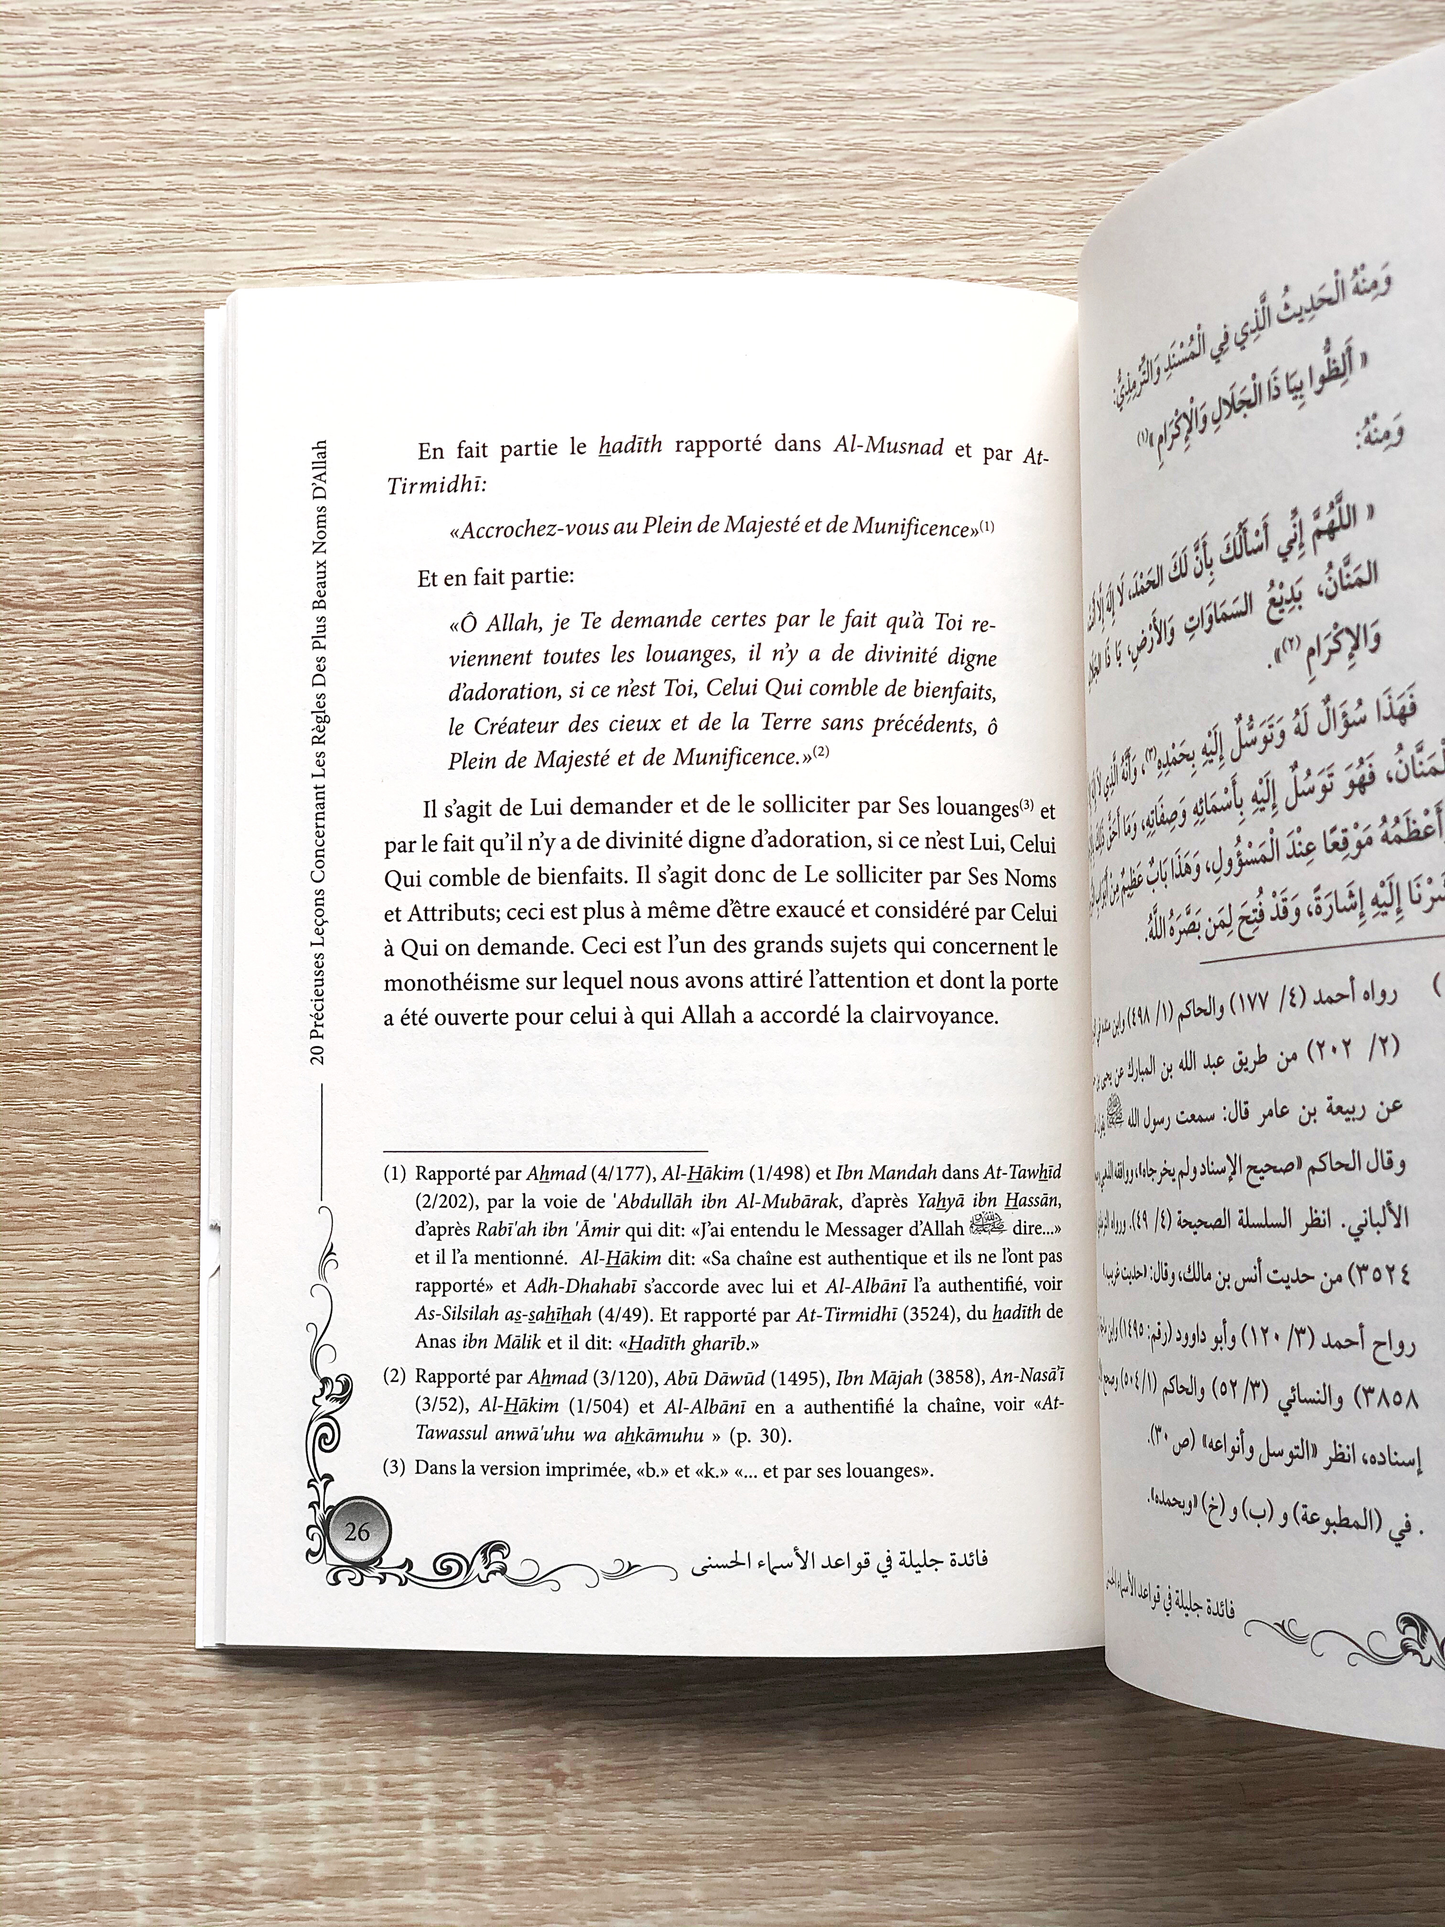 20 Précieuses Leçons Concernant Les Règles Des Plus Beaux Noms D'Allah
En fait partie le ẖadīth rapporté dans Al-Musnad et par At-
Tirmidhī:
«Accrochez-vous au Plein de Majesté et de Munificence»(1)
Et en fait partie:
«Ô Allah, je Te demande certes par le fait qu'à Toi re-
viennent toutes les louanges, il n'y a de divinité digne
d'adoration, si ce n'est Toi, Celui Qui comble de bienfaits,
le Créateur des cieux et de la Terre sans précédents, ô
Plein de Majesté et de Munificence.»(2)
Il s'agit de Lui demander et de le solliciter par Ses louanges(3) et
par le fait qu'il n'y a de divinité digne d'adoration, si ce n'est Lui, Celui
Qui comble de bienfaits. Il s'agit donc de Le solliciter par Ses Noms
et Attributs; ceci est plus à même d'être exaucé et considéré par Celui
à Qui on demande. Ceci est l'un des grands sujets qui concernent le
monothéisme sur lequel nous avons attiré l'attention et dont la porte
a été ouverte pour celui à qui Allah a accordé la clairvoyance.
(1) Rapporté par Aẖmad (4/177), Al-H̱ākim (1/498) et Ibn Mandah dans At-Tawẖīd
(2/202), par la voie de 'Abdullāh ibn Al-Mubārak, d'après Yaẖyā ibn H̱assān,
d'après Rabī'ah ibn 'Āmir qui dit: «J'ai entendu le Messager d'Allah ﷺ dire...»
et il l'a mentionné. Al-H̱ākim dit: «Sa chaîne est authentique et ils ne l'ont pas
rapporté» et Adh-Dhahabī s'accorde avec lui et Al-Albānī l'a authentifié, voir
As-Silsilah as̱-s̱aẖīẖah (4/49). Et rapporté par At-Tirmidhī (3524), du ẖadīth de
Anas ibn Mālik et il dit: «H̱adīth gharīb.»
(2) Rapporté par Aẖmad (3/120), Abū Dāwūd (1495), Ibn Mājah (3858), An-Nasā'ī
(3/52), Al-H̱ākim (1/504) et Al-Albānī en a authentifié la chaîne, voir «At-
Tawassul anwā'uhu wa aẖkāmuhu » (p. 30).
(3) Dans la version imprimée, «b.» et «k.» «... et par ses louanges».
26
فائدة جليلة في قواعد الأسماء الحسنى
وَمِنْهُ الْحَدِيثُ الَّذِي فِي الْمُسْنَدِ وَالتِّرْمِذِيُّ:
« أَلِظُّوا بِيَا ذَا الْجَلَالِ وَالْإِكْرَامِ»(١)
وَمِنْهُ:
« اللَّهُمَّ إِنِّي أَسْأَلُكَ بِأَنَّ لَكَ الحَمْدَ، لَا إِلَهَ إِلَّا
المَنَّانُ، بَدِيْعُ السَمَاوَاتِ وَالأَرْضِ، يَا ذَا
وَالإِكْرَامِ (٢)».
فَهَذَا سُؤَالٌ لَهُ وَتَوَسُّلٌ إِلَيْهِ بِحَمْدِهِ(٣)، وَأَنَّهُ الَّذِي لَا إِلَهَ
الْمَنَّانُ، فَهُوَ تَوَسُلٌ إِلَيْهِ بِأَسْمَائِهِ وَصِفَاتِهِ، وَمَا أَحَقَّ
أَعْظَمُهُ مَوْقِعًا عِنْدَ الْمَسْؤُولِ، وَهَذَا بَابٌ عَظِيمٌ مِنْ
إِلَيْهِ إِشَارَةً، وَقَدْ فُتِحَ لِمَن بَصَّرَهُ اللَّهُ.
رواه أحمد (٤/ ١٧٧) والحاكم (١/ ٤٩٨)
(٢/ ٢٠٢) من طريق عبد الله بن المبارك عن يحيى بن
عن ربيعة بن عامر قال: سمعت رسول الله ﷺ
وقال الحاكم «صحيح الإسناد ولم يخرجاه»، ووافقه الذهبي
الألباني. انظر السلسلة الصحيحة (٤/ ٤٩). ورواه
٣٥٢٤) من حديث أنس بن مالك، وقال: «حديث غريب»
رواح أحمد (٣/ ١٢٠) وأبو داوود (رقم: ١٤٩٥)
٣٨٥٨) والنسائي (٣/ ٥٢) والحاكم (١/ ٥٠٤)
إسناده، انظر «التوسل وأنواعه» (ص ٣٠).
في (المطبوعة) و (ب) و (خ) «وبحمده».
فائدة جليلة في قواعد الأسماء